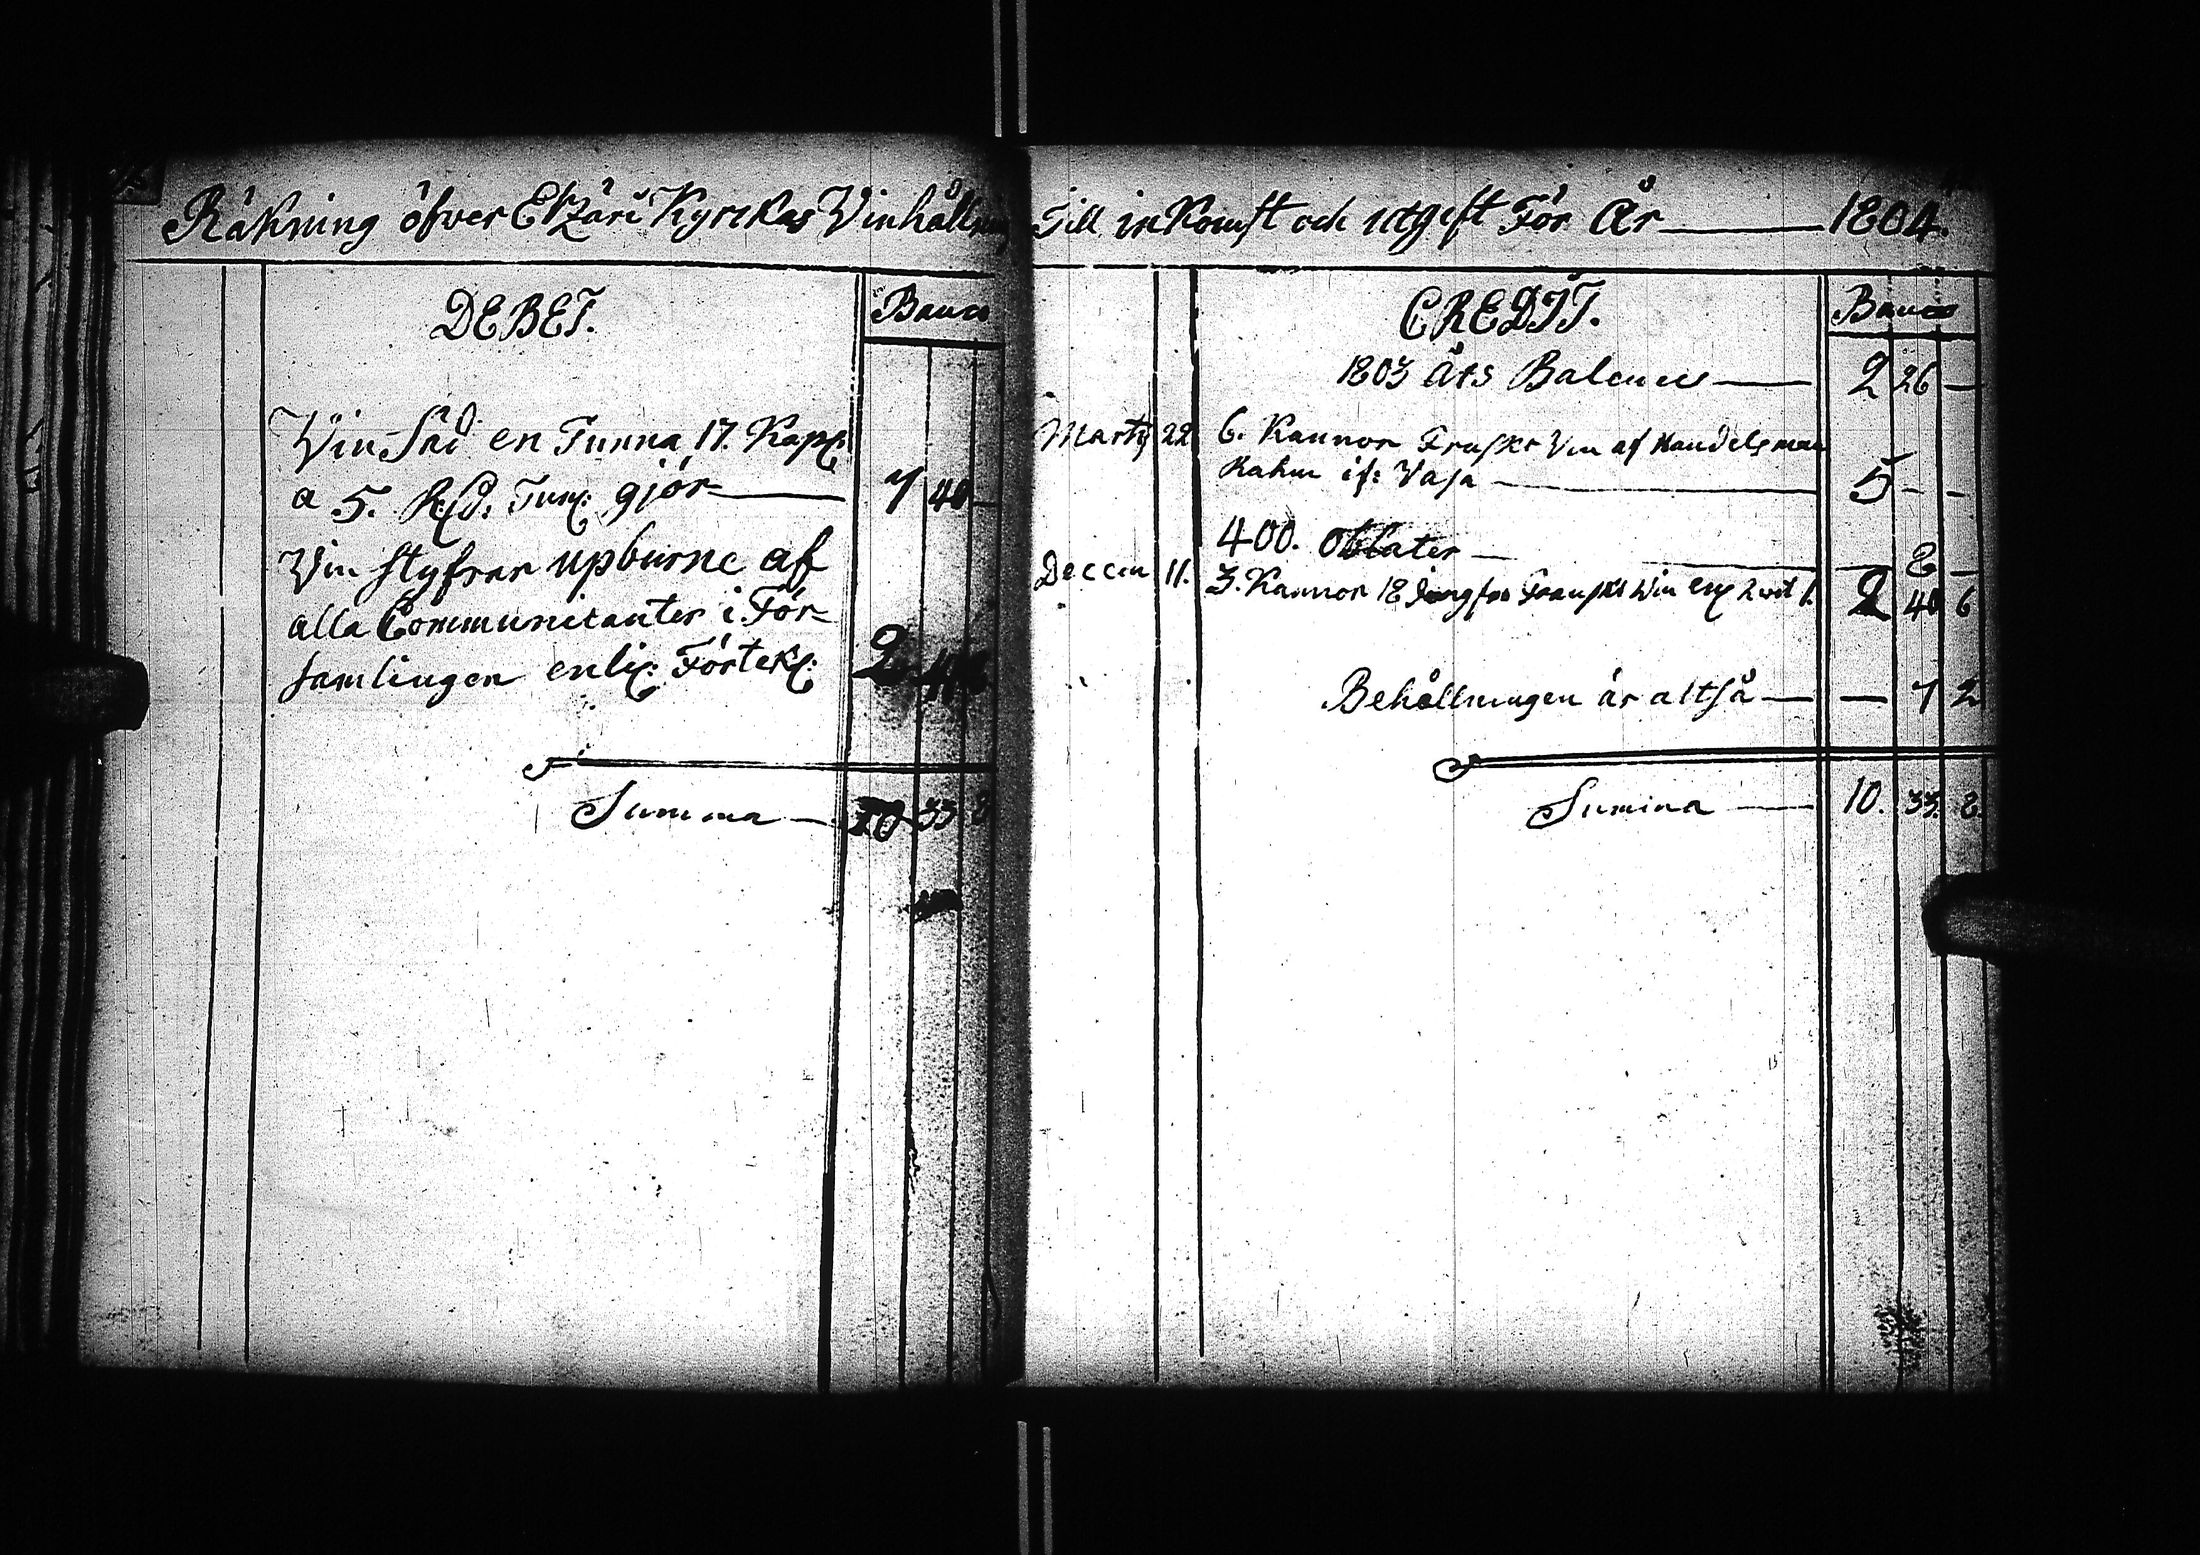 Räkning öfver Etzäri Kyrckas Vinhållning Till inkomst och utgift För År 1804.
DEBET.
Banco
Vin Säd en Tunna 17. Kapp:
a 5. R:sd: Tun: gjör 7 40 —
Vin styfrar upburne af
alla Communicanter i För-
samlingen enli: Förtek: 2
Summa 10 33 8
CREDIT.
Banco
1803 Års Balance 2 26 —
Marti 22 6. Kannor Franskt Vin af Handelsman
Rahm i Vasa 5 - -
400. Oblater — 8 —
Decem 11. 3. Kannor 18 Franskt Win 2 40 6
Behållningen är altså — 7 2
Summa 10. 33. 8.